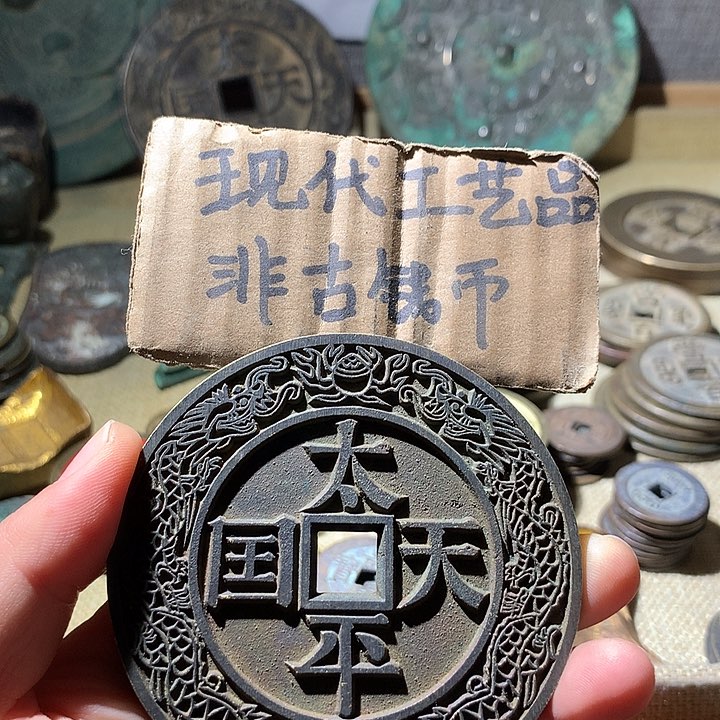 现代工艺品
非古钱币
太平天囯